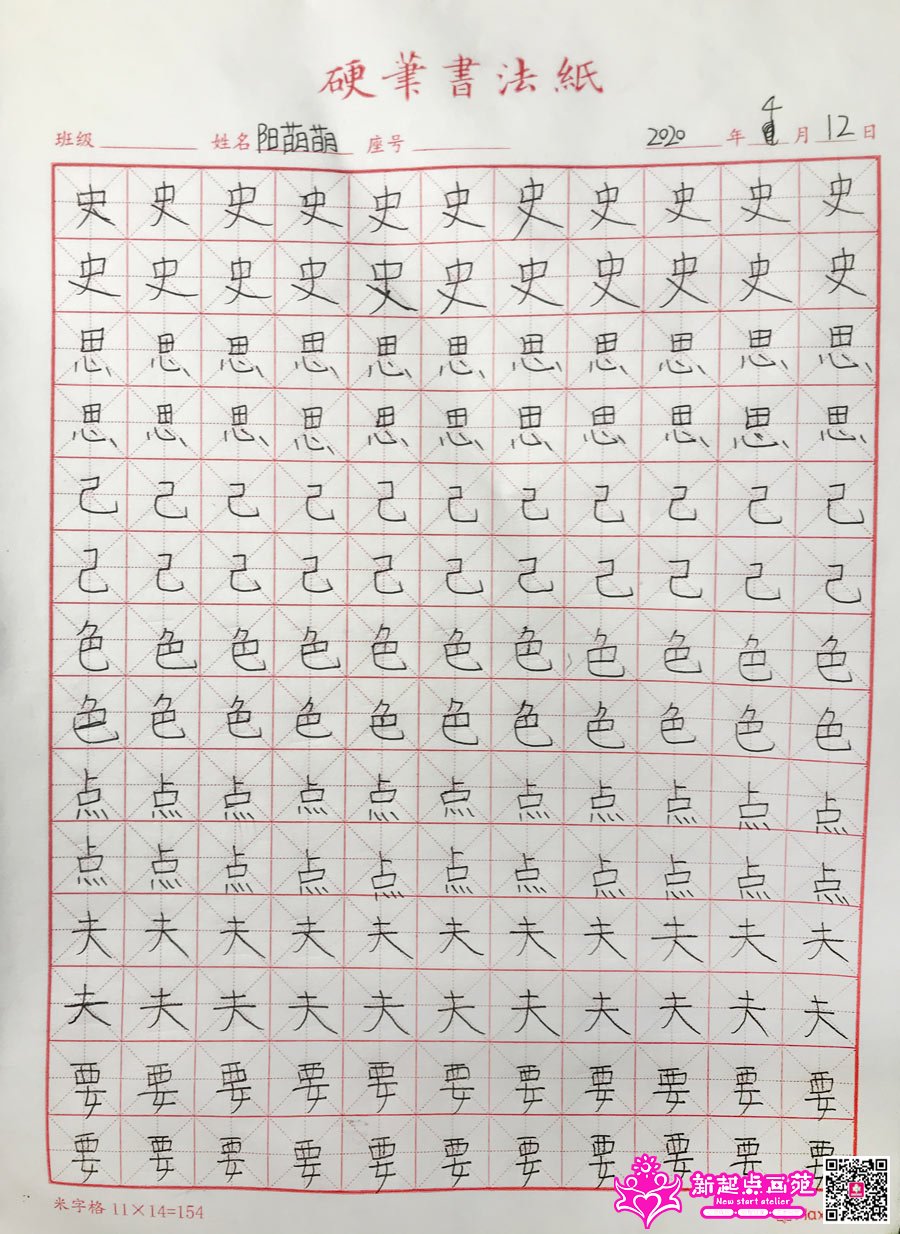 硬筆書法紙
班级 姓名 阳萌萌 座号 2020 年 4 月 12 日
史史史史史史史史史史史
史史史史史史史史史史史
思思思思思思思思思思思
思思思思思思思思思思思
己己己己己己己己己己己
己己己己己己己己己己己
色色色色色色色色色色色
色色色色色色色色色色色
点点点点点点点点点点点
点点点点点点点点点点点
夫夫夫夫夫夫夫夫夫夫夫
夫夫夫夫夫夫夫夫夫夫夫
要要要要要要要要要要要
要要要要要要要要要要要
米字格 11×14=154
新起点画苑
New start atelier